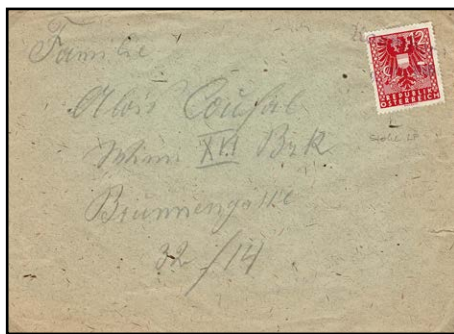 Familie
Alois Coufal
Wien XVI Bzk
Brunnengasse
32/14
12
REPUBLIK
ÖSTERREICH
Siehe